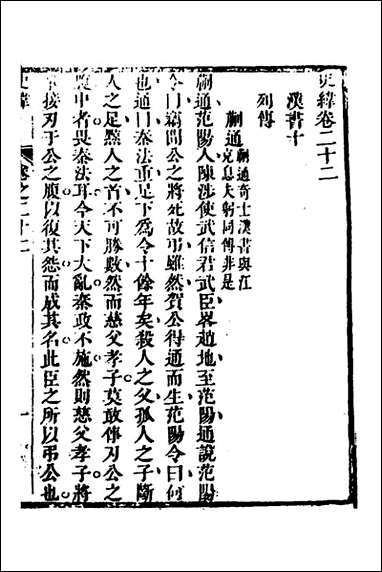 史緯卷二十二
漢書十
列傳
蒯通 蒯通奇士漢書與江
充息夫躬同傳非是
蒯通范陽人陳涉使武信君武臣畧趙地至范陽通說范陽
令曰竊閔公之將死故弔雖然賀公得通而生范陽令曰何
也通曰秦法重足下爲令十餘年矣殺人之父孤人之子斷
人之足黥人之首不可勝數然而慈父孝子莫敢倳刃公之
腹中者畏秦法耳今天下大亂秦政不施然則慈父孝子將
接刃于公之腹以復其怨而成其名此臣之所以弔公也
史緯
卷之二十二
一